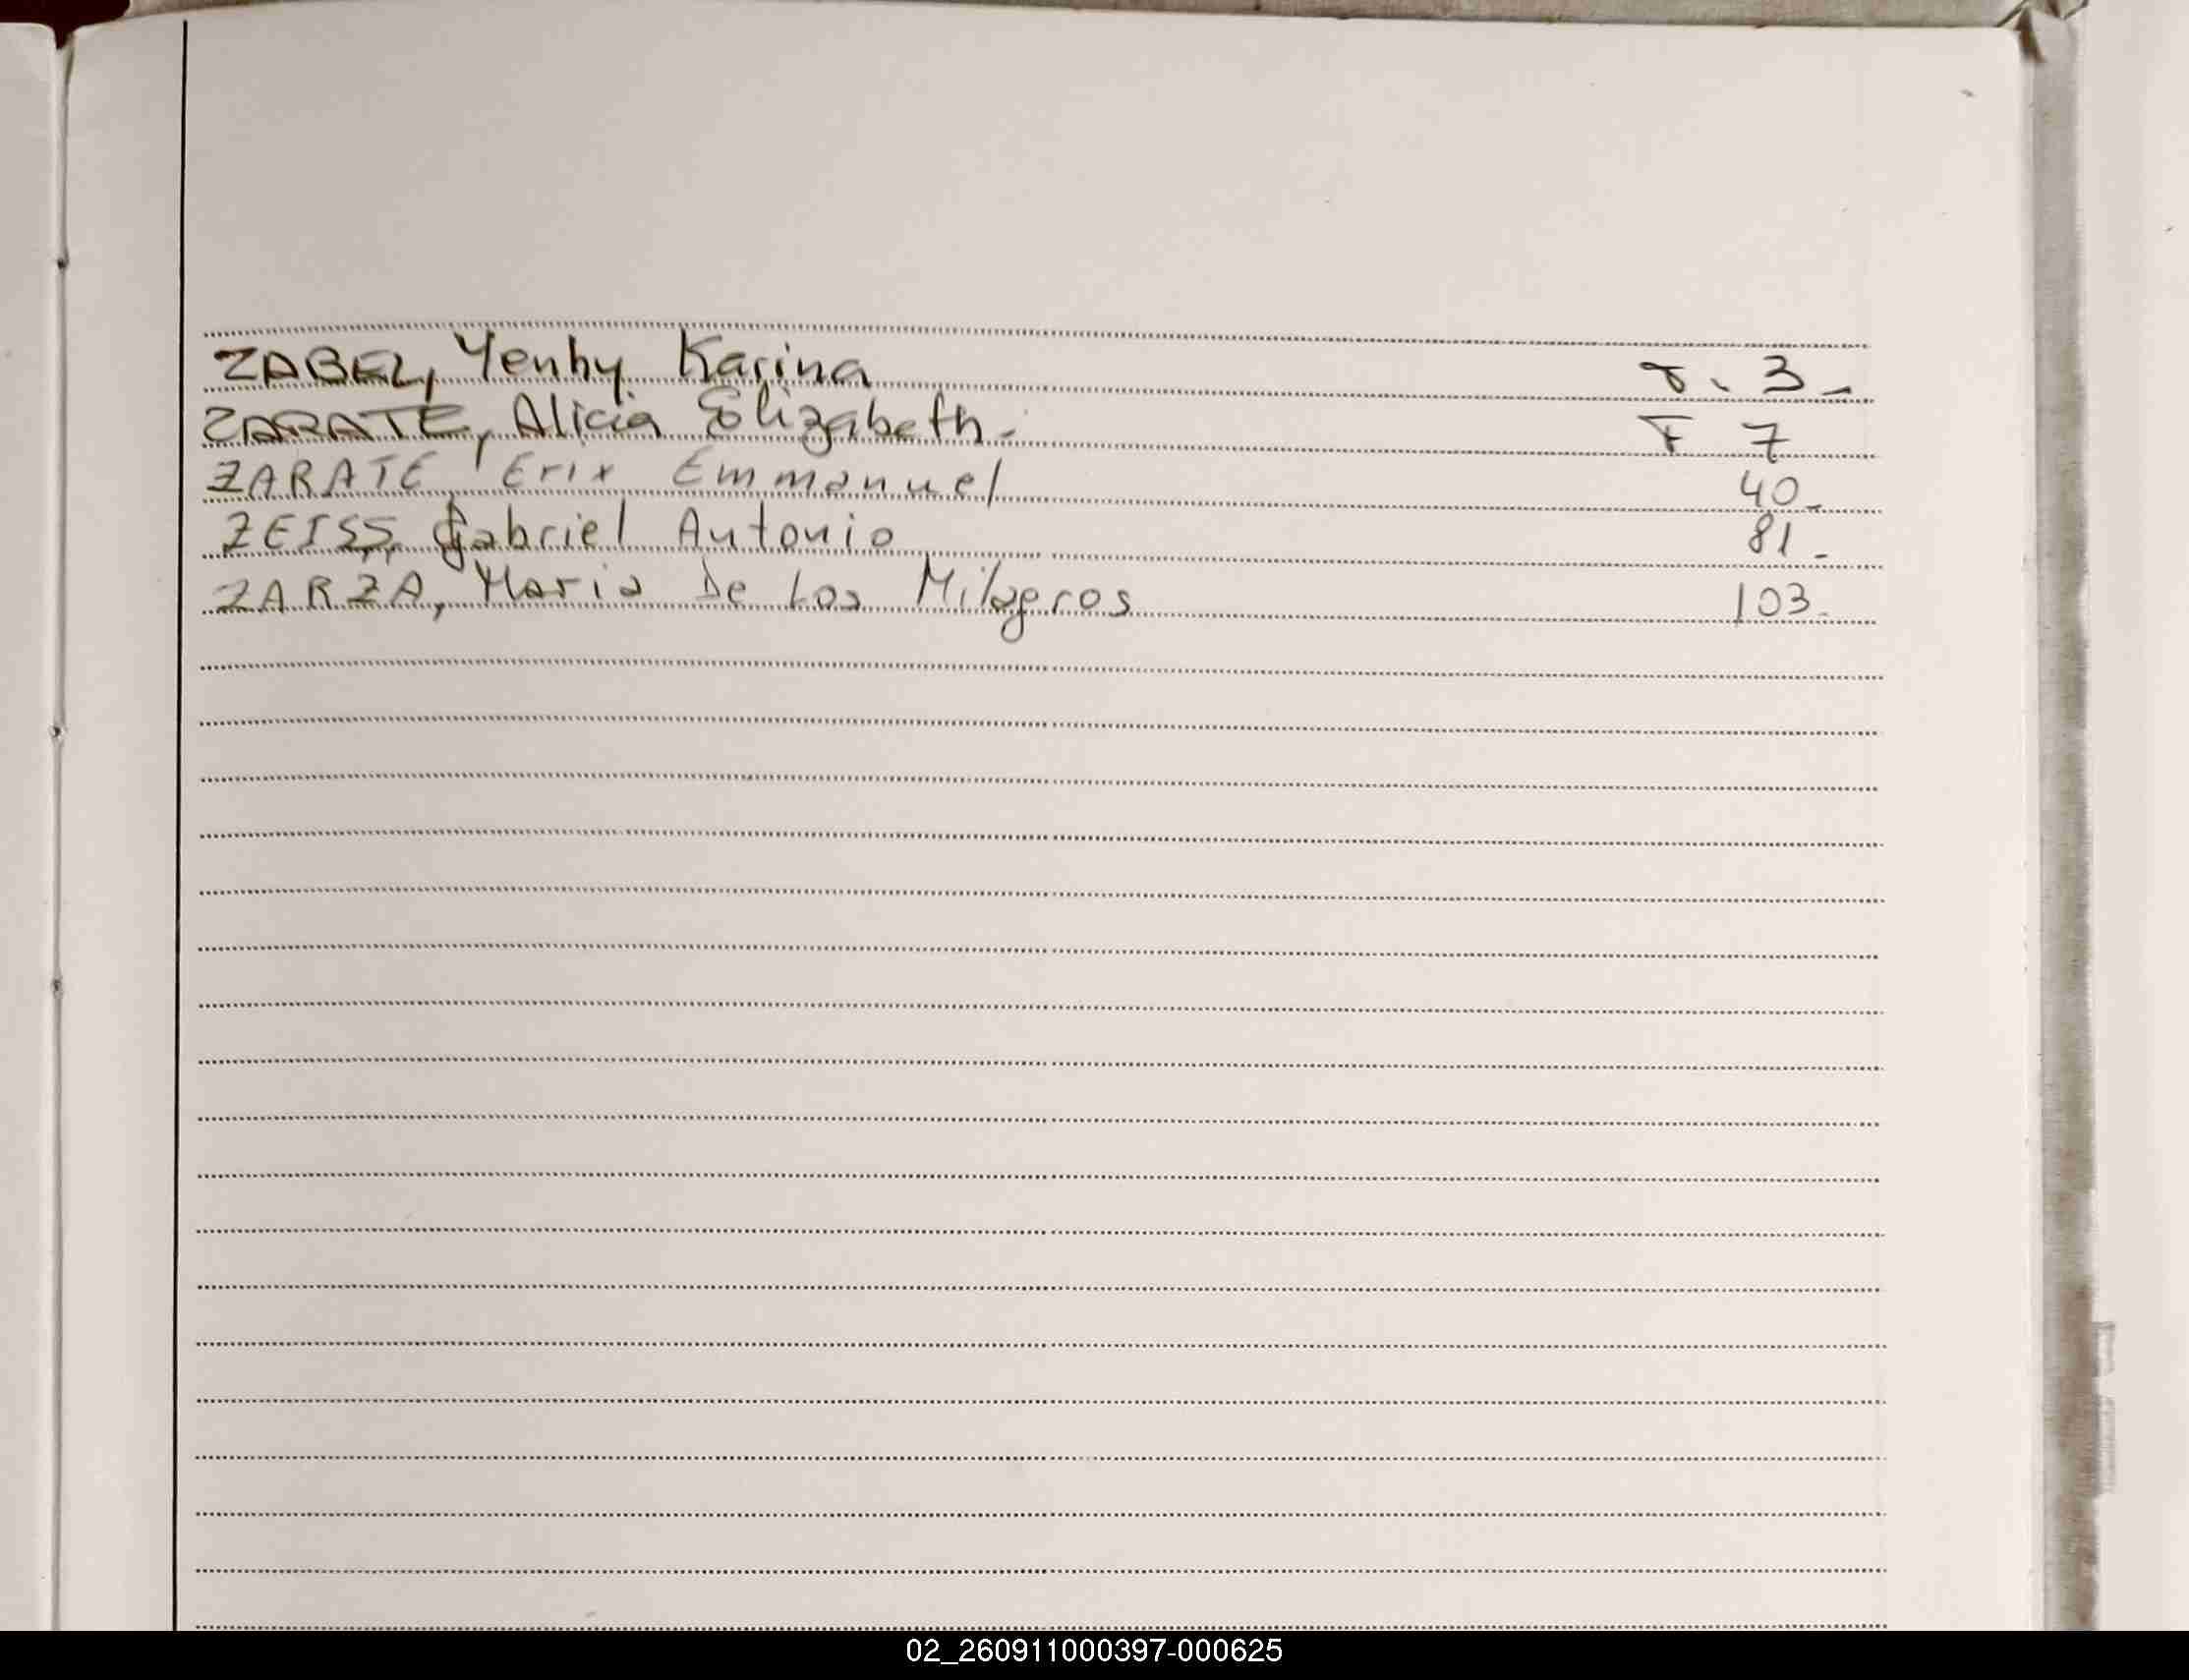 ZABEL, Yenhy Karina 8. 3-
ZARATE, Alicia Elizabeth- F 7
ZARATE, Erix Emmanuel 40-
ZEISS, Gabriel Antonio 81-
ZARZA, Maria De Los Milagros 103-
02_260911000397-000625